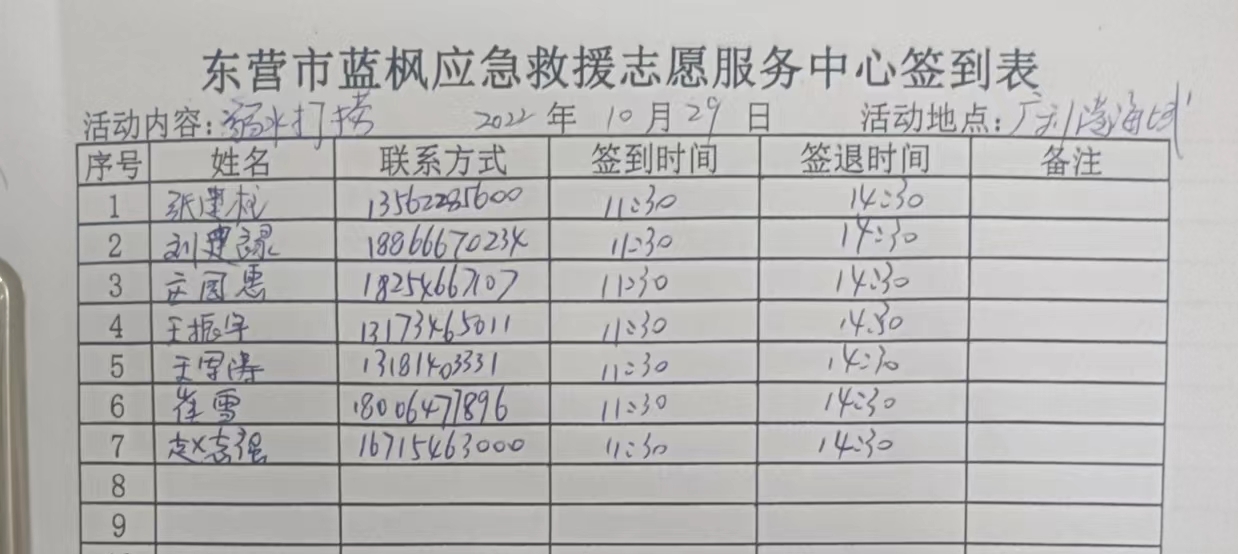 东营市蓝枫应急救援志愿服务中心签到表
活动内容:溺水打捞 2022 年 10 月 29 日 活动地点:广利港海域
序号 姓名 联系方式 签到时间 签退时间 备注
1 张建 13562285600 11:30 14:30
2 刘建禄 18866670234 11:30 14:30
3 国惠 18254667107 11:30 14:30
4 王振军 13173465011 11:30 14:30
5 王军涛 13181403331 11:30 14:30
6 崔雪 18006477896 11:30 14:30
7 赵志强 16715463000 11:30 14:30
8
9